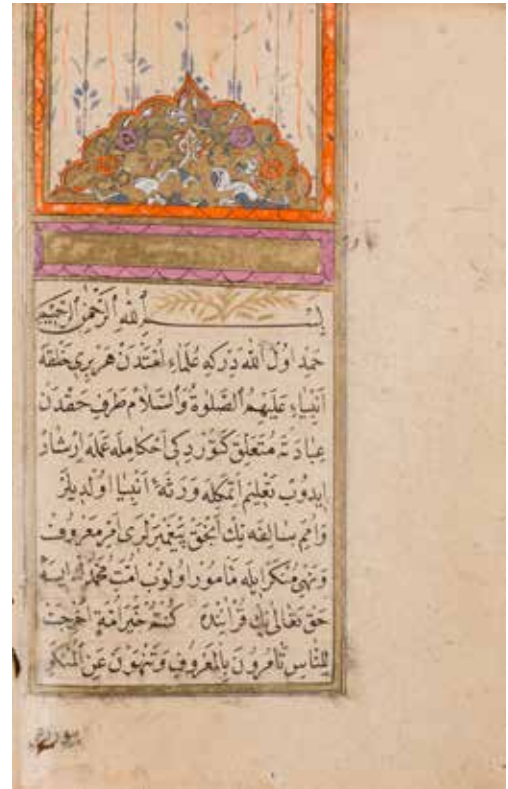 بِسْــــمِ ٱللهِ ٱلرَّحْمٰنِ ٱلرَّحِيمِ
حَمْد اُولْ اللّٰهَ دِرْكِه عُلَمَاءِ اُمَّتْدَنْ هَرْ بِرِي خَلْقَه
اَنْبِيَاءِ عَلَيْهِمُ ٱلصَّلٰوةُ وَٱلسَّلَامْ طَرَفِ حَقْدَنْ
عِبَادَتَه مُتَعَلِّقْ كَتُورْدِكِى اَحْكَامِلَه عَمَلَه اِرْشَادْ
اِيدُوبْ تَعْلِيم اِتْمَكِلَه وَرَثَهٔ اَنْبِيَا اُولْدِيلَرْ
وَاُمَمِ سَالِفَه نِكْ اَنْجَقْ پَيْغَمْبَرْلَرِى اَمْرِ مَعْرُوفْ
وَنَهْىِ مُنْكَرْ اِيلَه مَأْمُورْ اُولُوبْ اُمَّتِ مُحَمَّدْ اِيسَه
حَقْ تَعَالٰى نِكْ قُرْآنِنْدَه كُنْتُمْ خَيْرَ اُمَّةٍ اُخْرِجَتْ
لِلنَّاسِ تَأْمُرُونَ بِالْمَعْرُوفِ وَتَنْهَوْنَ عَنِ ٱلْمُنْكَرِ